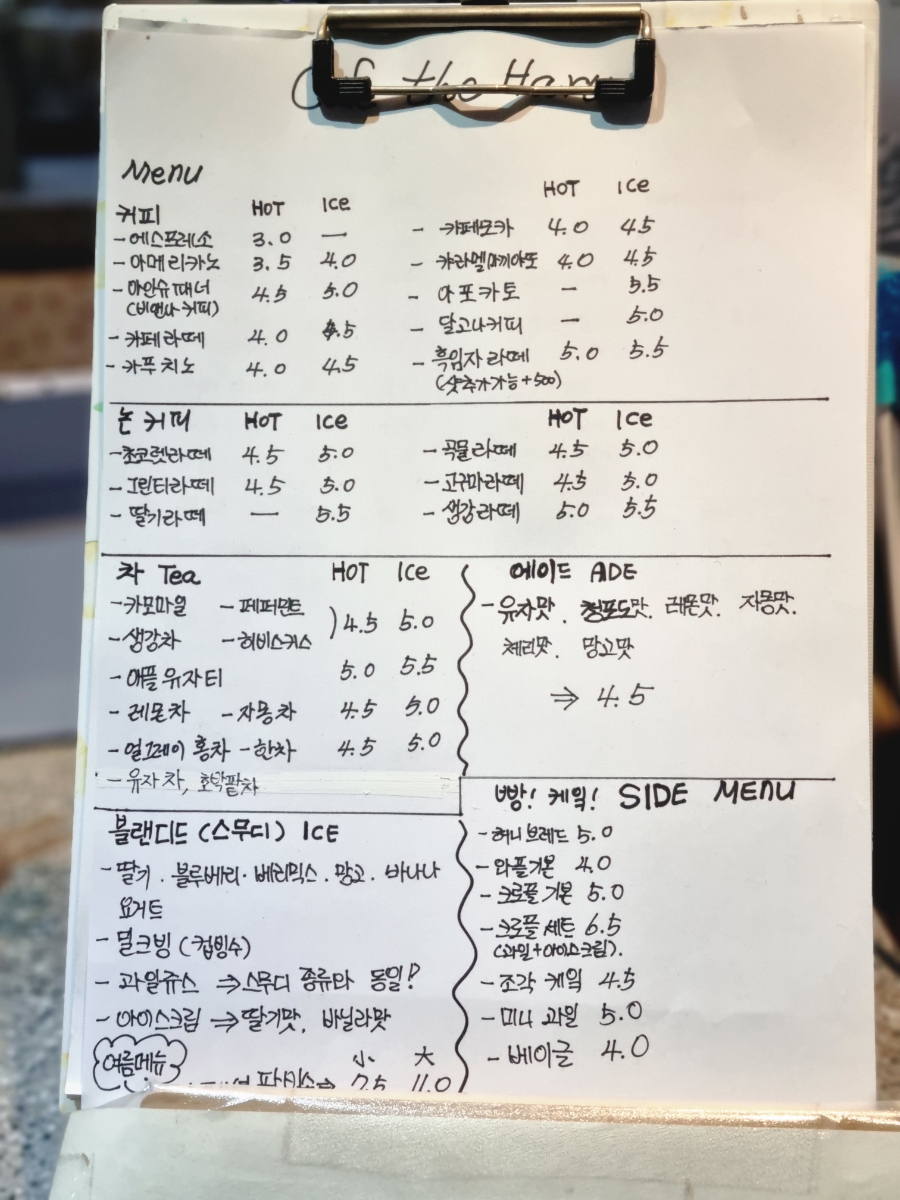 Cafe the
Menu
커피 HOT ICe
- 에스프레소 3.0 —
- 아메리카노 3.5 4.0
- 아인슈패너 4.5 5.0
(비엔나커피)
- 카페라떼 4.0 4.5
- 카푸치노 4.0 4.5
HOT ICe
- 카페모카 4.0 4.5
- 카라멜마끼아또 4.0 4.5
- 아포카토 — 5.5
- 달고나커피 — 5.0
- 흑임자라떼 5.0 5.5
(샷추가가능+500)
논커피 HOT ICe
- 초코렛라떼 4.5 5.0
- 그린티라떼 4.5 5.0
- 딸기라떼 — 5.5
HOT ICe
- 곡물라떼 4.5 5.0
- 고구마라떼 4.5 5.0
- 생강라떼 5.0 5.5
차 Tea HOT ICe
- 카모마일 - 페퍼민트
- 생강차 - 히비스커스 ) 4.5 5.0
- 애플유자티 5.0 5.5
- 레몬차 - 자몽차 4.5 5.0
- 얼그레이 홍차 - 한차 4.5 5.0
- 유자차, 호박팥차
에이드 ADE
- 유자맛. 청포도맛. 레몬맛. 자몽맛.
체리맛. 망고맛
⇒ 4.5
블랜디드 (스무디) ICE
- 딸기. 블루베리. 베리믹스. 망고. 바나나
요거트
- 밀크빙 (컵빙수)
- 과일쥬스 ⇒ 스무디 종류와 동일!
- 아이스크림 ⇒ 딸기맛, 바닐라맛
여름메뉴 小 大
팥빙수 ⇒ 7.5 11.0
빵! 케익! SIDE MENU
- 허니브레드 5.0
- 와플기본 4.0
- 크로플기본 5.0
- 크로플세트 6.5
(과일+아이스크림).
- 조각 케익 4.5
- 미니 과일 5.0
- 베이글 4.0